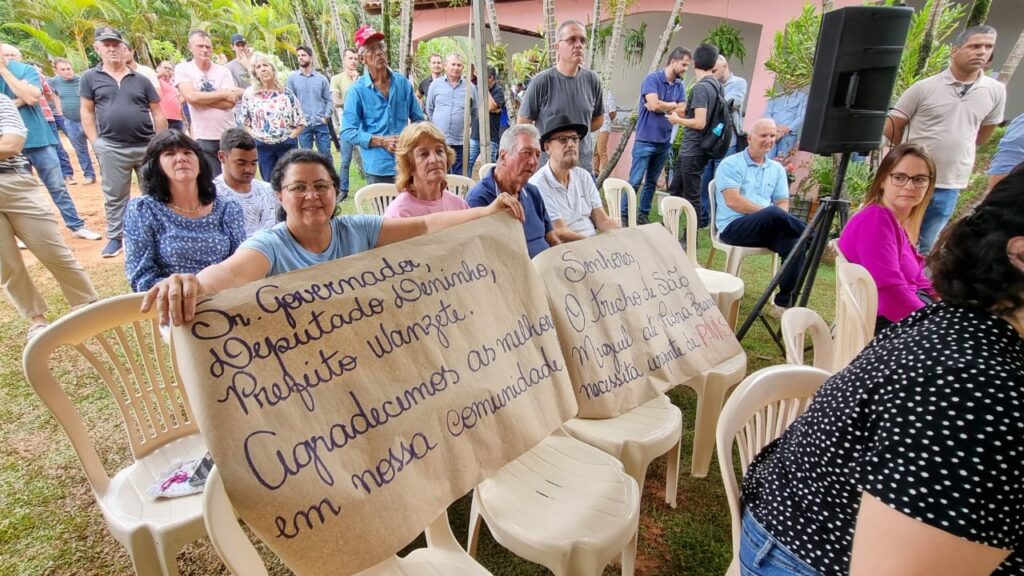 Sr. Governador,
Deputado Deninho,
Prefeito Wanzete.
Agradecemos as melhori
em nossa comunidade
Senhores,
O trecho de São
Miguel até Pana
necessita urgente de PAVI